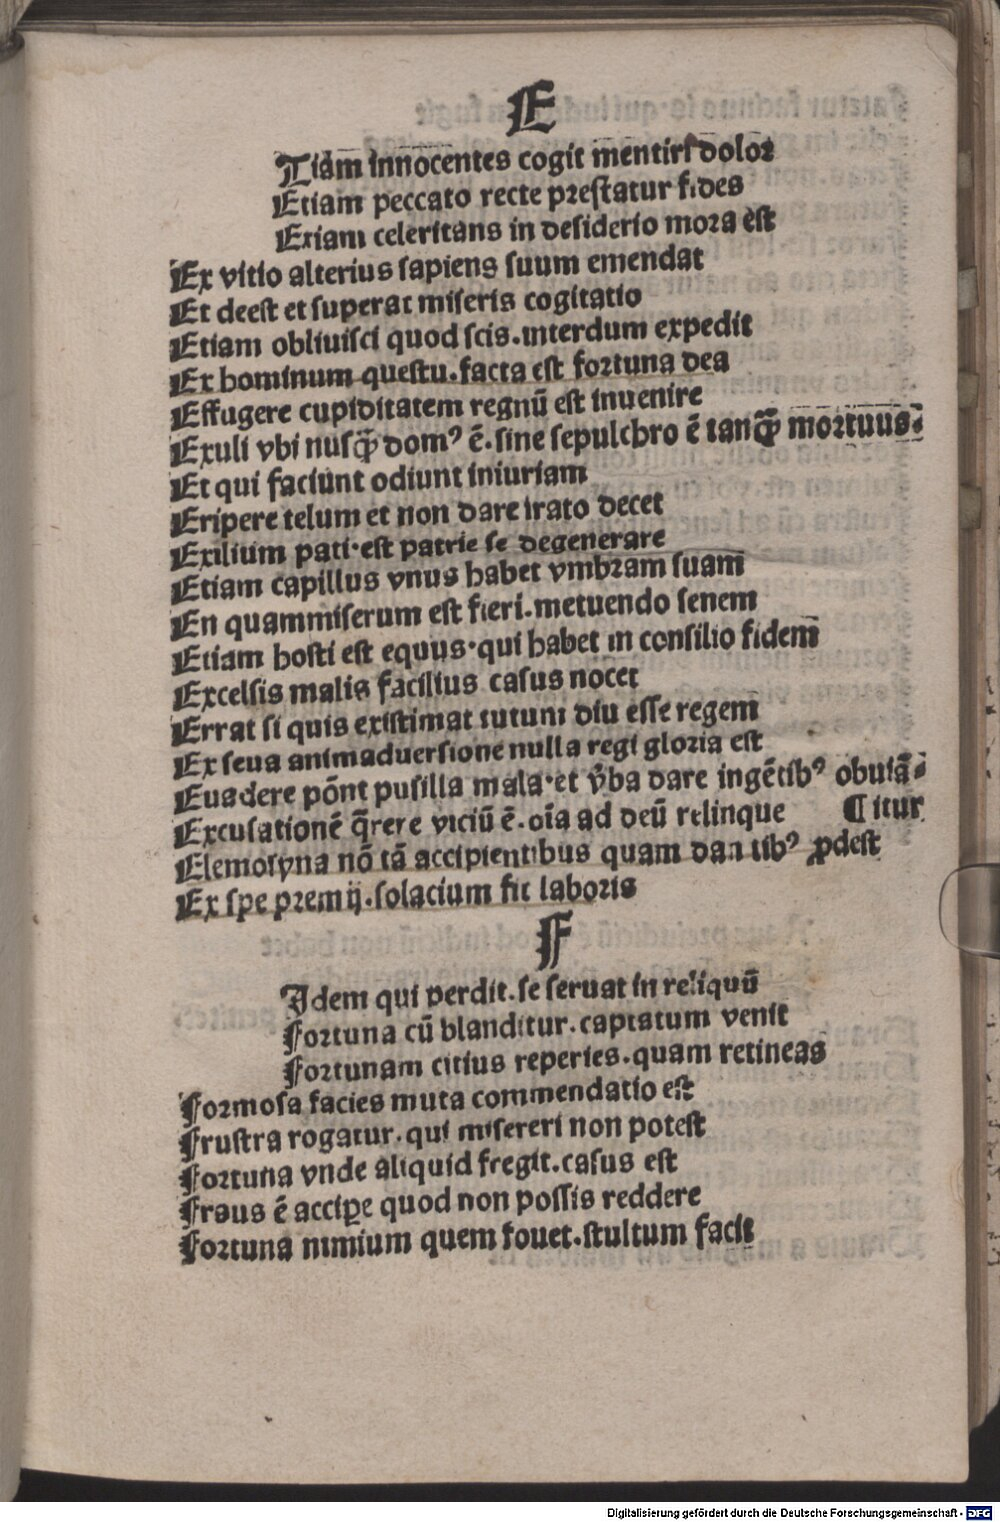 E
Tiam innocentes cogit mentiri dolor
Etiam peccato recte prestatur fides
Etiam celeritans in desiderio mora est
Ex vitio alterius sapiens suum emendat
Et deest et superat miseris cogitatio
Etiam obliuisci quod scis.interdum expedit
Ex hominum questu.facta est fortuna dea
Effugere cupiditatem regnū est inuenire
Exuli vbi nusq̄ domꝰ ē.sine sepulchro ē tanq̄ mortuus.
Et qui faciunt odiunt iniuriam
Eripere telum et non dare irato decet
Exilium pati.est patrie se degenerare
Etiam capillus vnus habet vmbram suam
En quammiserum est fieri.metuendo senem
Etiam hosti est equus.qui habet in consilio fidem
Excelsis malis facilius casus nocet
Errat si quis existimat tutum diu esse regem
Ex seua animaduersione nulla regi gloria est
Euadere pōnt pusilla mala.et v̄ba dare ingētibꝰ obuiā.
Excusationē q̄rere viciū ē.oīa ad deū relinque ¶ itur
Elemosyna nō tā accipientibus quam dantibꝰ ꝓdest
Ex spe premij.solacium fit laboris
F
Idem qui perdit.se seruat in reliquū
Fortuna cū blanditur.captatum venit
Fortunam citius reperies.quam retineas
Formosa facies muta commendatio est
Frustra rogatur.qui misereri non potest
Fortuna vnde aliquid fregit.casus est
Fraus ē accipe quod non possis reddere
Fortuna nimium quem fouet.stultum facit
Digitalisierung gefördert durch die Deutsche Forschungsgemeinschaft - DFG